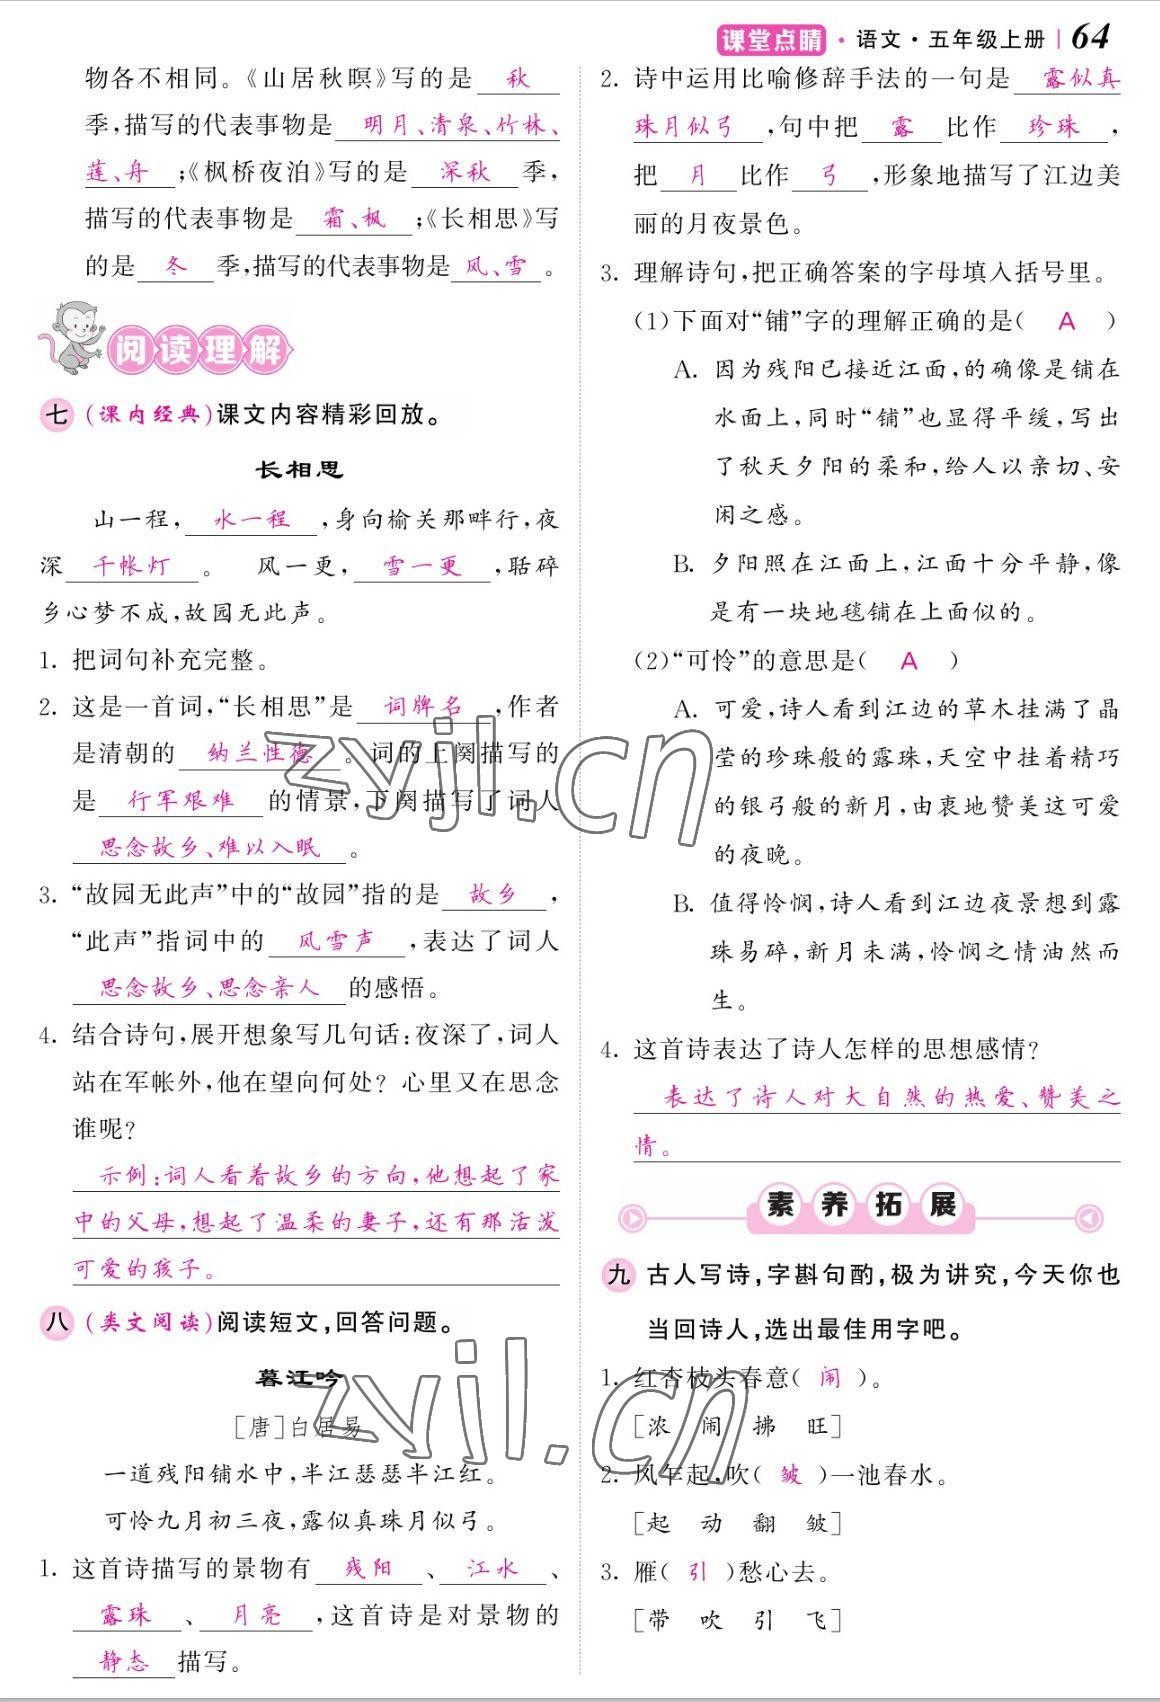 课堂点睛·语文·五年级上册 64
物各不相同。《山居秋暝》写的是 秋
季,描写的代表事物是 明月、清泉、竹林、
莲、舟 ;《枫桥夜泊》写的是 深秋 季,
描写的代表事物是 霜、枫 ;《长相思》写
的是 冬 季,描写的代表事物是 风、雪 。
阅读理解
七 (课内经典)课文内容精彩回放。
长相思
山一程, 水一程 ,身向榆关那畔行,夜
深 千帐灯 。 风一更, 雪一更 ,聒碎
乡心梦不成,故园无此声。
1. 把词句补充完整。
2. 这是一首词,“长相思”是 词牌名 ,作者
是清朝的 纳兰性德 。词的上阕描写的
是 行军艰难 的情景,下阕描写了词人
思念故乡、难以入眠 。
3. “故园无此声”中的“故园”指的是 故乡 ,
“此声”指词中的 风雪声 ,表达了词人
思念故乡、思念亲人 的感悟。
4. 结合诗句,展开想象写几句话:夜深了,词人
站在军帐外,他在望向何处? 心里又在思念
谁呢?
示例:词人看着故乡的方向,他想起了家
中的父母,想起了温柔的妻子,还有那活泼
可爱的孩子。
八 (类文阅读)阅读短文,回答问题。
暮江吟
[唐]白居易
一道残阳铺水中,半江瑟瑟半江红。
可怜九月初三夜,露似真珠月似弓。
1. 这首诗描写的景物有 残阳 、 江水 、
露珠 、 月亮 ,这首诗是对景物的
静态 描写。
2. 诗中运用比喻修辞手法的一句是 露似真
珠月似弓 ,句中把 露 比作 珍珠 ,
把 月 比作 弓 ,形象地描写了江边美
丽的月夜景色。
3. 理解诗句,把正确答案的字母填入括号里。
(1)下面对“铺”字的理解正确的是( A )
A. 因为残阳已接近江面,的确像是铺在
水面上,同时“铺”也显得平缓,写出
了秋天夕阳的柔和,给人以亲切、安
闲之感。
B. 夕阳照在江面上,江面十分平静,像
是有一块地毯铺在上面似的。
(2)“可怜”的意思是( A )
A. 可爱,诗人看到江边的草木挂满了晶
莹的珍珠般的露珠,天空中挂着精巧
的银弓般的新月,由衷地赞美这可爱
的夜晚。
B. 值得怜悯,诗人看到江边夜景想到露
珠易碎,新月未满,怜悯之情油然而
生。
4. 这首诗表达了诗人怎样的思想感情?
表达了诗人对大自然的热爱、赞美之
情。
素养拓展
九 古人写诗,字斟句酌,极为讲究,今天你也
当回诗人,选出最佳用字吧。
1. 红杏枝头春意( 闹 )。
[浓 闹 拂 旺]
2. 风乍起,吹( 皱 )一池春水。
[起 动 翻 皱]
3. 雁( 引 )愁心去。
[带 吹 引 飞]
zyjl.cn
zyjl.cn